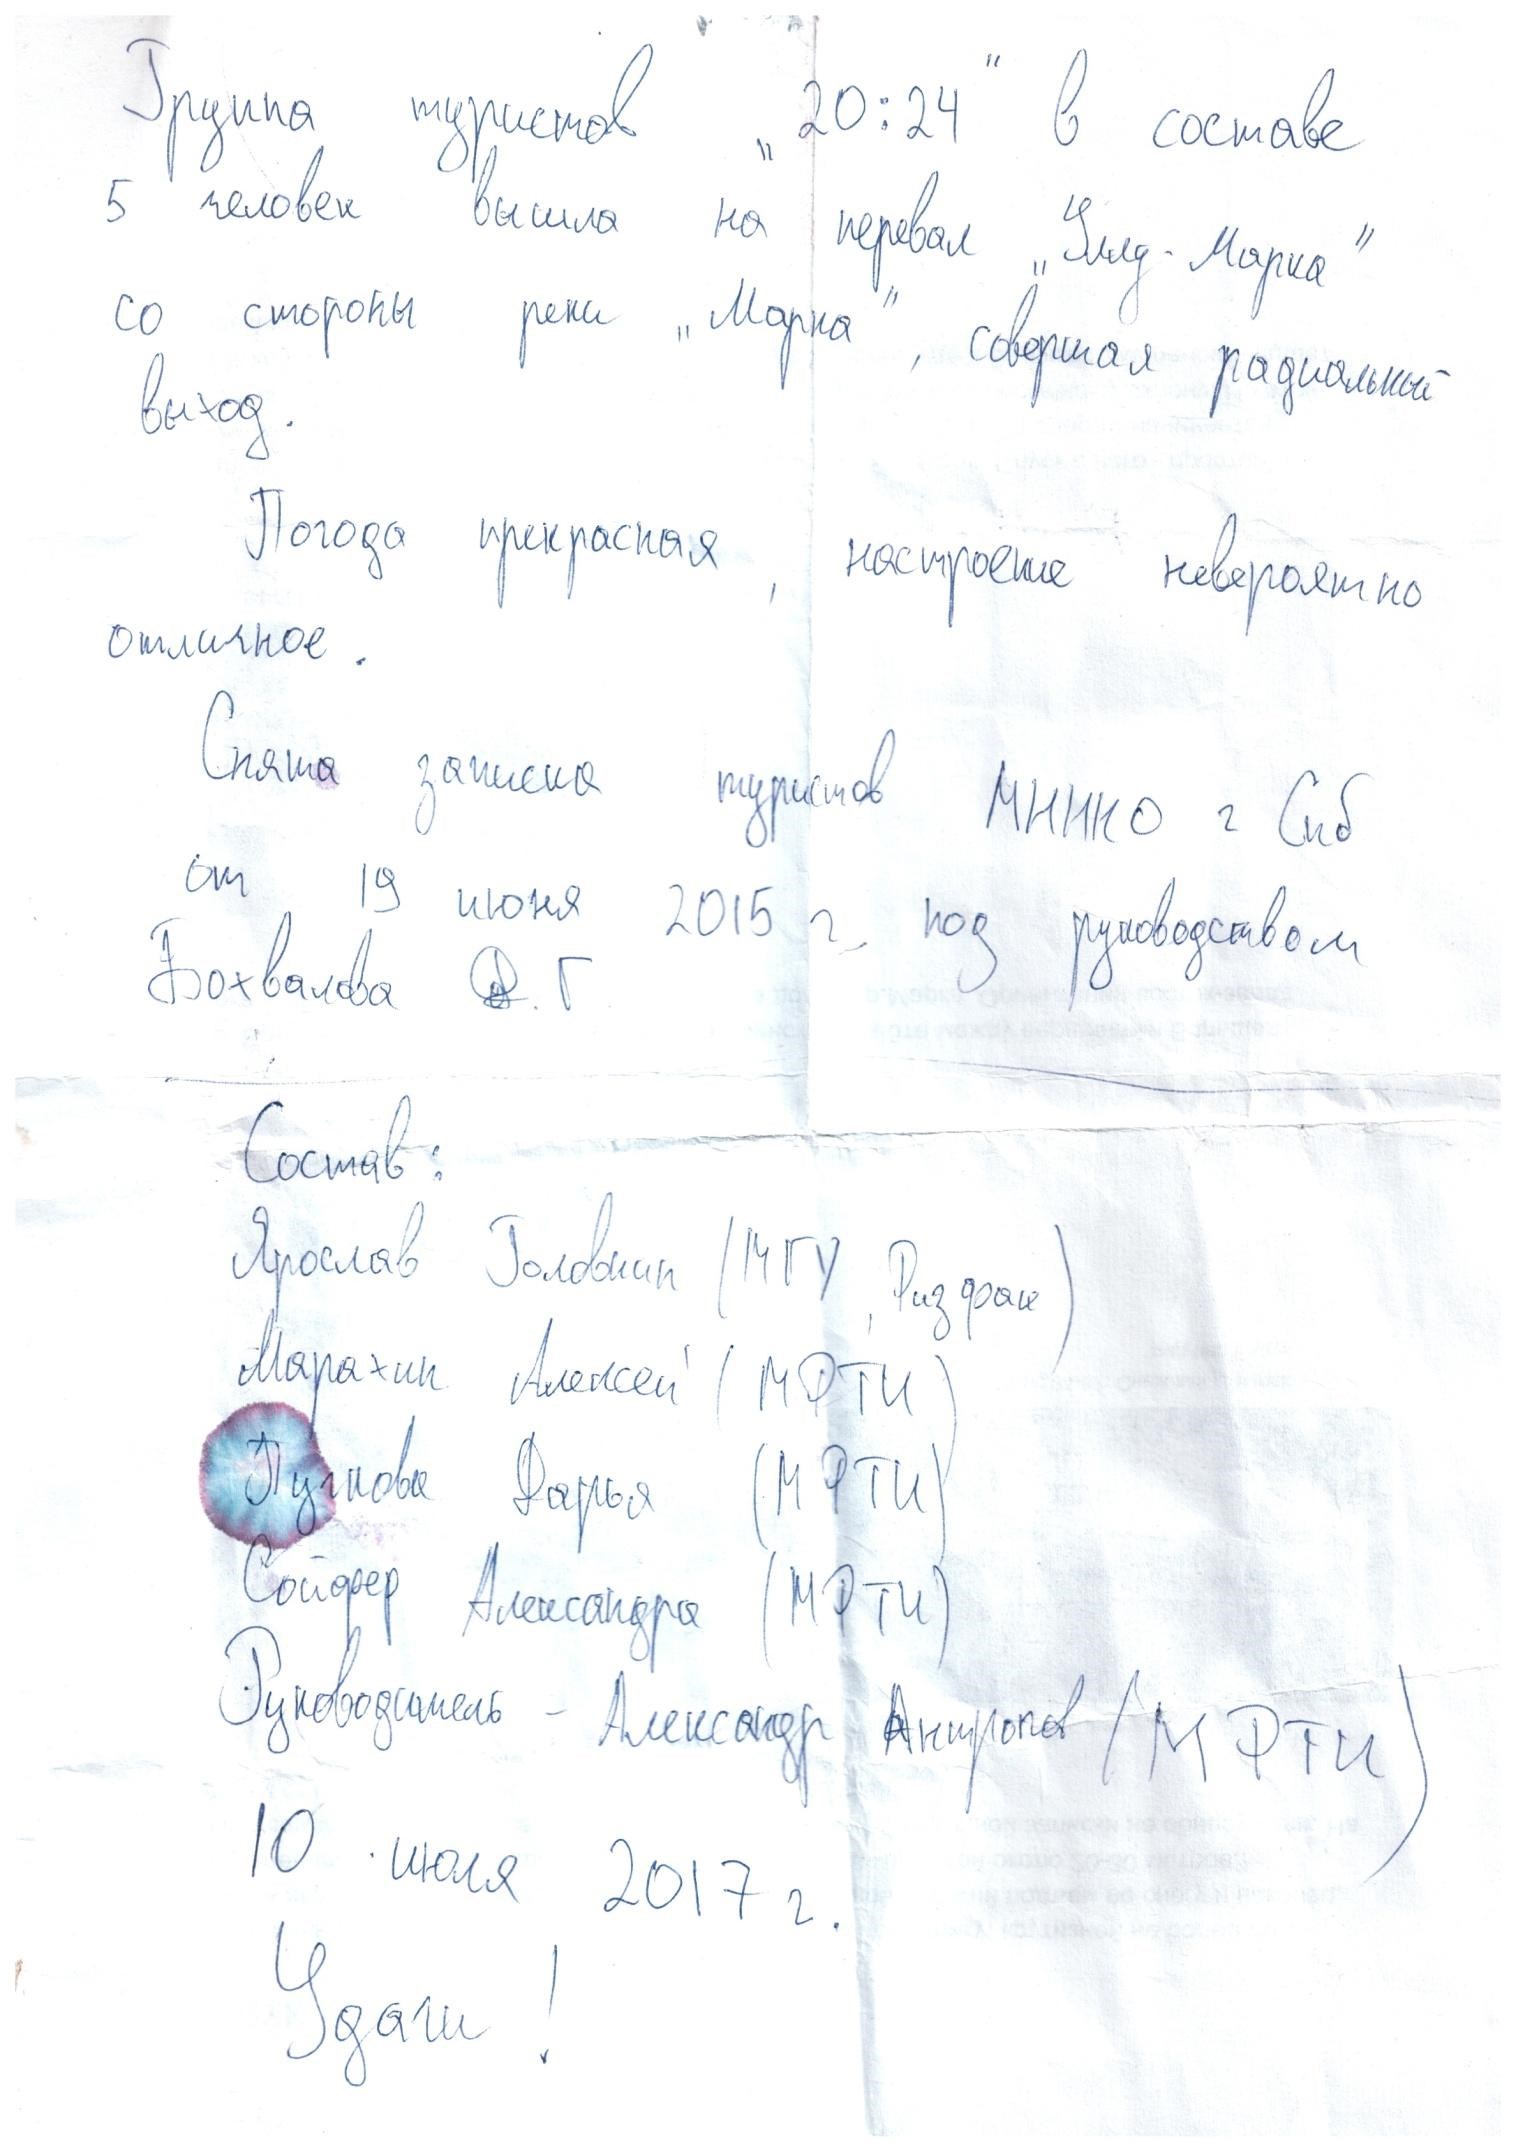 Группа туристов „20:24" в составе
5 человек вышла на перевал „Уллу-Марка"
со стороны реки „Марка", совершая радиальный
выход.
Погода прекрасная, настроение невероятно
отличное.
Снята записка туристов МННКО г Спб
от 19 июня 2015 г. под руководством
Бохвалова Д.Г
Состав:
Ярослав Головкин (МГУ, Физфак)
Марахин Алексей (МФТИ)
Пучкова Дарья (МФТИ)
Сойфер Александра (МФТИ)
Руководитель - Александр Антропов (МФТИ)
10 июля 2017 г.
Удачи!